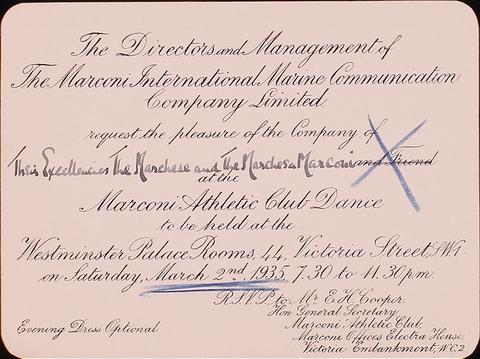 The Directors and Management of
The Marconi International Marine Communication
Company Limited
request the pleasure of the Company of
Their Excellencies The Marchese and The Marchesa Marconi and Friend
at the
Marconi Athletic Club Dance
to be held at the
Westminster Palace Rooms, 44, Victoria Street, S.W.1.
on Saturday, March 2nd 1935, 7.30 to 11.30 p.m.
R.S.V.P. to Mr E.H. Cooper.
Hon. General Secretary
Marconi Athletic Club.
Evening Dress Optional.
Marconi Offices Electra House,
Victoria Embankment, W.C.2